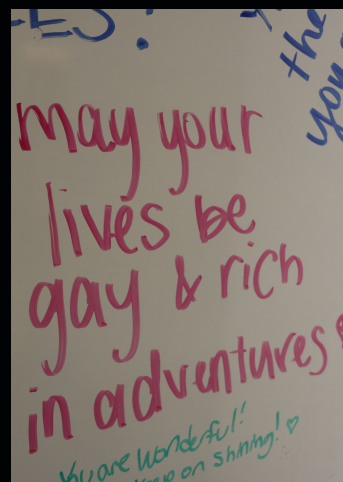 the
you
may your
lives be
gay & rich
in adventures
You are Wonderful!
on Shining! ♡